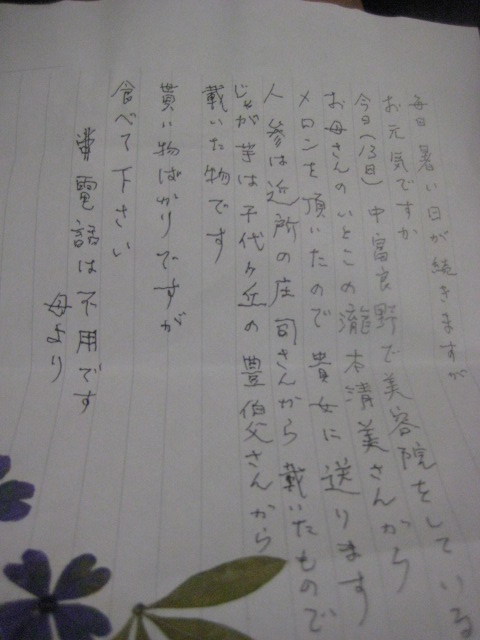 毎日暑い日が続きますが
お元気ですか
今日(13日)中富良野で美容院をしている
お母さんのいとこの瀧本清美さんから
メロンを頂いたので貴女に送ります
人参は近所の庄司さんから載いたもので
じゃが芋は千代ヶ丘の豊伯父さんから
載いた物です
貰い物ばかりですが
食べて下さい
電話は不用です
母より